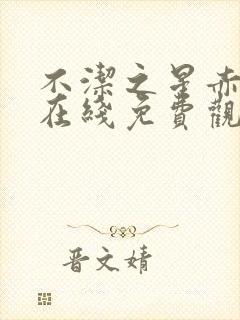 不潔之星赤
在綫免費觀
晋文婧